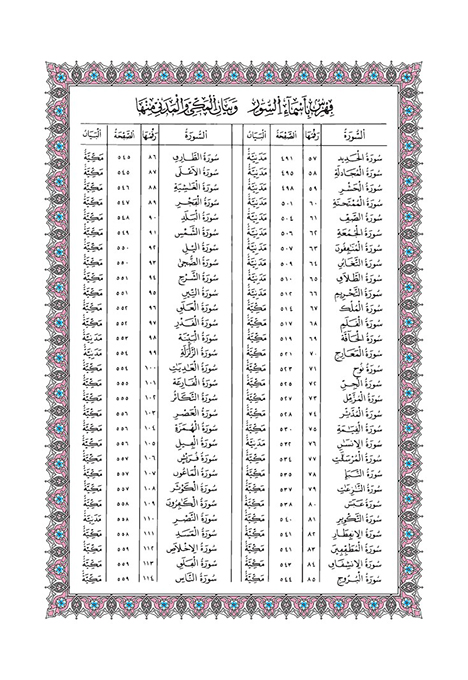 فِهْرِسْ بِأَسْمَاءِ السُّوَرِ وَبَيَانِ الْمَكِّيِّ وَالْمَدَنِيِّ مِنْهَا
السُّورَة رَقْمُهَا الصَّفْحَة الْبَيَان
سُورَةُ الْحَدِيد ٥٧ ٤٩١ مَدَنِيَّة
سُورَةُ الْمُجَادَلَة ٥٨ ٤٩٥ مَدَنِيَّة
سُورَةُ الْحَشْر ٥٩ ٤٩٨ مَدَنِيَّة
سُورَةُ الْمُمْتَحنَة ٦٠ ٥٠١ مَدَنِيَّة
سُورَةُ الصَّف ٦١ ٥٠٤ مَدَنِيَّة
سُورَةُ الْجُمُعَة ٦٢ ٥٠٦ مَدَنِيَّة
سُورَةُ الْمُنَٰفِقُون ٦٣ ٥٠٧ مَدَنِيَّة
سُورَةُ التَّغَابُن ٦٤ ٥٠٩ مَدَنِيَّة
سُورَةُ الطَّلَاق ٦٥ ٥١٠ مَدَنِيَّة
سُورَةُ التَّحْرِيم ٦٦ ٥١٢ مَدَنِيَّة
سُورَةُ الْمُلْك ٦٧ ٥١٤ مَكِّيَّة
سُورَةُ الْقَلَم ٦٨ ٥١٧ مَكِّيَّة
سُورَةُ الْحَاقَّة ٦٩ ٥١٩ مَكِّيَّة
سُورَةُ الْمَعَارِج ٧٠ ٥٢١ مَكِّيَّة
سُورَةُ نُوح ٧١ ٥٢٣ مَكِّيَّة
سُورَةُ الْجِن ٧٢ ٥٢٥ مَكِّيَّة
سُورَةُ الْمُزَّمِّل ٧٣ ٥٢٧ مَكِّيَّة
سُورَةُ الْمُدَّثِّر ٧٤ ٥٢٨ مَكِّيَّة
سُورَةُ الْقِيَٰمَة ٧٥ ٥٣٠ مَكِّيَّة
سُورَةُ الْإِنْسَٰن ٧٦ ٥٣٢ مَدَنِيَّة
سُورَةُ الْمُرْسَلَٰت ٧٧ ٥٣٤ مَكِّيَّة
سُورَةُ النَّبَإ ٧٨ ٥٣٥ مَكِّيَّة
سُورَةُ النَّٰزِعَٰت ٧٩ ٥٣٧ مَكِّيَّة
سُورَةُ عَبَسَ ٨٠ ٥٣٨ مَكِّيَّة
سُورَةُ التَّكْوِير ٨١ ٥٤٠ مَكِّيَّة
سُورَةُ الِانفِطَار ٨٢ ٥٤١ مَكِّيَّة
سُورَةُ الْمُطَفِّفِين ٨٣ ٥٤١ مَكِّيَّة
سُورَةُ الِانشِقَاق ٨٤ ٥٤٣ مَكِّيَّة
سُورَةُ الْبُرُوج ٨٥ ٥٤٤ مَكِّيَّة
السُّورَة رَقْمُهَا الصَّفْحَة الْبَيَان
سُورَةُ الطَّارِق ٨٦ ٥٤٥ مَكِّيَّة
سُورَةُ الْأَعْلَى ٨٧ ٥٤٥ مَكِّيَّة
سُورَةُ الْغَٰشِيَة ٨٨ ٥٤٦ مَكِّيَّة
سُورَةُ الْفَجْر ٨٩ ٥٤٧ مَكِّيَّة
سُورَةُ الْبَلَد ٩٠ ٥٤٨ مَكِّيَّة
سُورَةُ الشَّمْس ٩١ ٥٤٩ مَكِّيَّة
سُورَةُ الَّيْل ٩٢ ٥٥٠ مَكِّيَّة
سُورَةُ الضُّحَىٰ ٩٣ ٥٥٠ مَكِّيَّة
سُورَةُ الشَّرْح ٩٤ ٥٥١ مَكِّيَّة
سُورَةُ التِّين ٩٥ ٥٥١ مَكِّيَّة
سُورَةُ الْعَلَق ٩٦ ٥٥٢ مَكِّيَّة
سُورَةُ الْقَدْر ٩٧ ٥٥٢ مَكِّيَّة
سُورَةُ الْبَيِّنَة ٩٨ ٥٥٣ مَدَنِيَّة
سُورَةُ الزَّلْزَلَة ٩٩ ٥٥٤ مَدَنِيَّة
سُورَةُ الْعَٰدِيَٰت ١٠٠ ٥٥٤ مَكِّيَّة
سُورَةُ الْقَارِعَة ١٠١ ٥٥٥ مَكِّيَّة
سُورَةُ التَّكَاثُر ١٠٢ ٥٥٥ مَكِّيَّة
سُورَةُ الْعَصْر ١٠٣ ٥٥٦ مَكِّيَّة
سُورَةُ الْهُمَزَة ١٠٤ ٥٥٦ مَكِّيَّة
سُورَةُ الْفِيل ١٠٥ ٥٥٦ مَكِّيَّة
سُورَةُ قُرَيْش ١٠٦ ٥٥٧ مَكِّيَّة
سُورَةُ الْمَاعُون ١٠٧ ٥٥٧ مَكِّيَّة
سُورَةُ الْكَوْثَر ١٠٨ ٥٥٧ مَكِّيَّة
سُورَةُ الْكَٰفِرُون ١٠٩ ٥٥٨ مَكِّيَّة
سُورَةُ النَّصْر ١١٠ ٥٥٨ مَدَنِيَّة
سُورَةُ الْمَسَد ١١١ ٥٥٨ مَكِّيَّة
سُورَةُ الْإِخْلَاص ١١٢ ٥٥٩ مَكِّيَّة
سُورَةُ الْفَلَق ١١٣ ٥٥٩ مَكِّيَّة
سُورَةُ النَّاس ١١٤ ٥٥٩ مَكِّيَّة